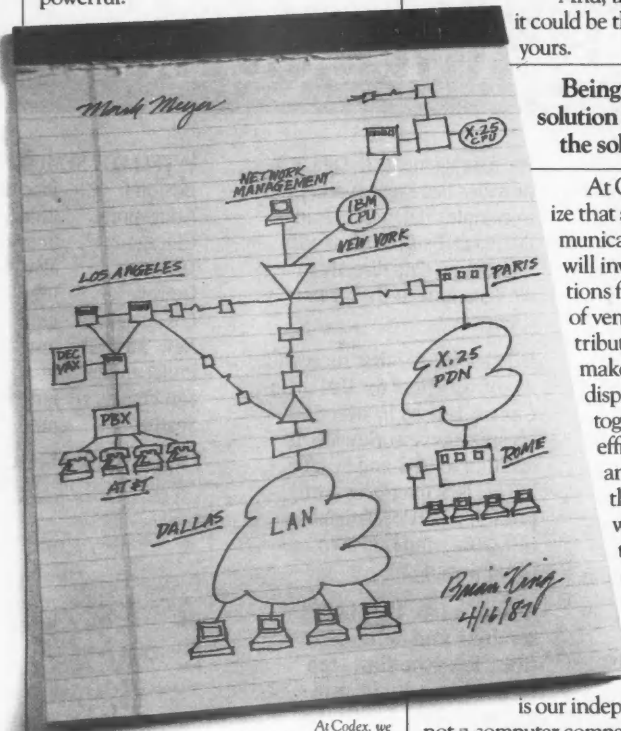 powerful.
And, th
it could be th
yours.
Being
solution
the sol
At C
ize that a
municat
will inv
tions f
of ven
tribut
make
disp
tog
effi
an
th
w
t
is our indep
At Codex, we
not a computer compa
Mark Meyer
X.25 CPU
NETWORK
MANAGEMENT
IBM
CPU
NEW YORK
LOS ANGELES
PARIS
DEC
VAX
X.25
PDN
PBX
AT&T
ROME
DALLAS
LAN
Brian King
4/16/87